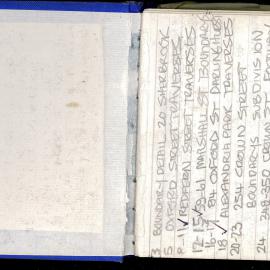 3 BOUNDARY DETAIL 20 SHERBROOK
5 OXFORD STREET TRAVERSES
8 REDFERN STREET TRAVERSES
12-15 59-61 MARSHALL ST BOUNDARYS
16-17 84 OXFORD ST DARLINGHURST
18 ALEXANDRIA PARK TRAVERSES
20-23 254 CROWN STREET
BOUNDARYS SUBDIVISION
24 248-250